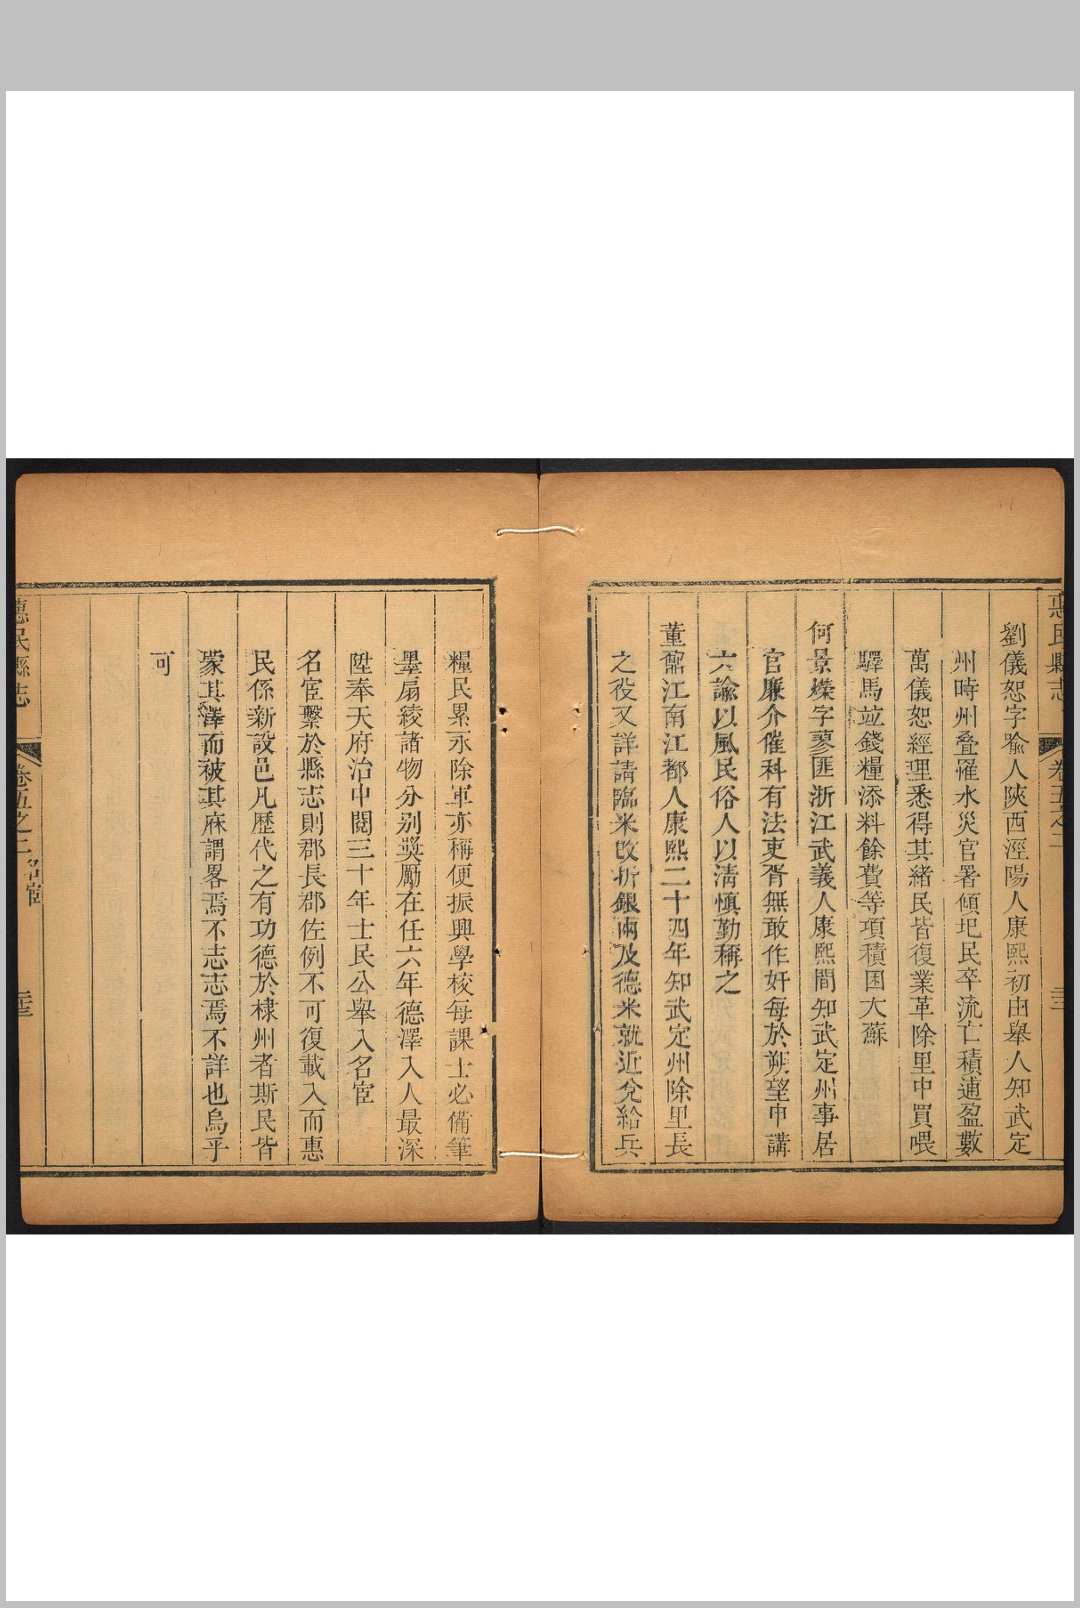 惠民縣志
卷五之二
劉儀恕字㕘人陝西涇陽人康熙初由舉人知武定
州時州叠罹水災官署傾圮民卒流亡積逋盈數
萬儀恕經理悉得其緒民皆復業革除里中買喂
驛馬竝錢糧添料餘費等項積困大蘇
何景㰒字蓼匪浙江武義人康熙間知武定州事居
官廉介催科有法吏胥無敢作奸每於朔望申講
六諭以風民俗人以清慎勤稱之
董鼐江南江都人康熙二十四年知武定州除里長
之役又詳請臨米改折銀兩及德米就近兌給兵
糧民累永除軍亦稱便振興學校每課士必備筆
墨扇綾諸物分别奨勵在任六年德澤入人最深
陞奉天府治中閱三十年士民公舉入名宦
名宦繫於縣志則郡長郡佐例不可復載入而惠
民係新設邑凡歷代之有功德於棣州者斯民皆
蒙其澤而被其庥謂畧焉不志志焉不詳也烏乎
可
惠民縣志
卷五之二
名宦